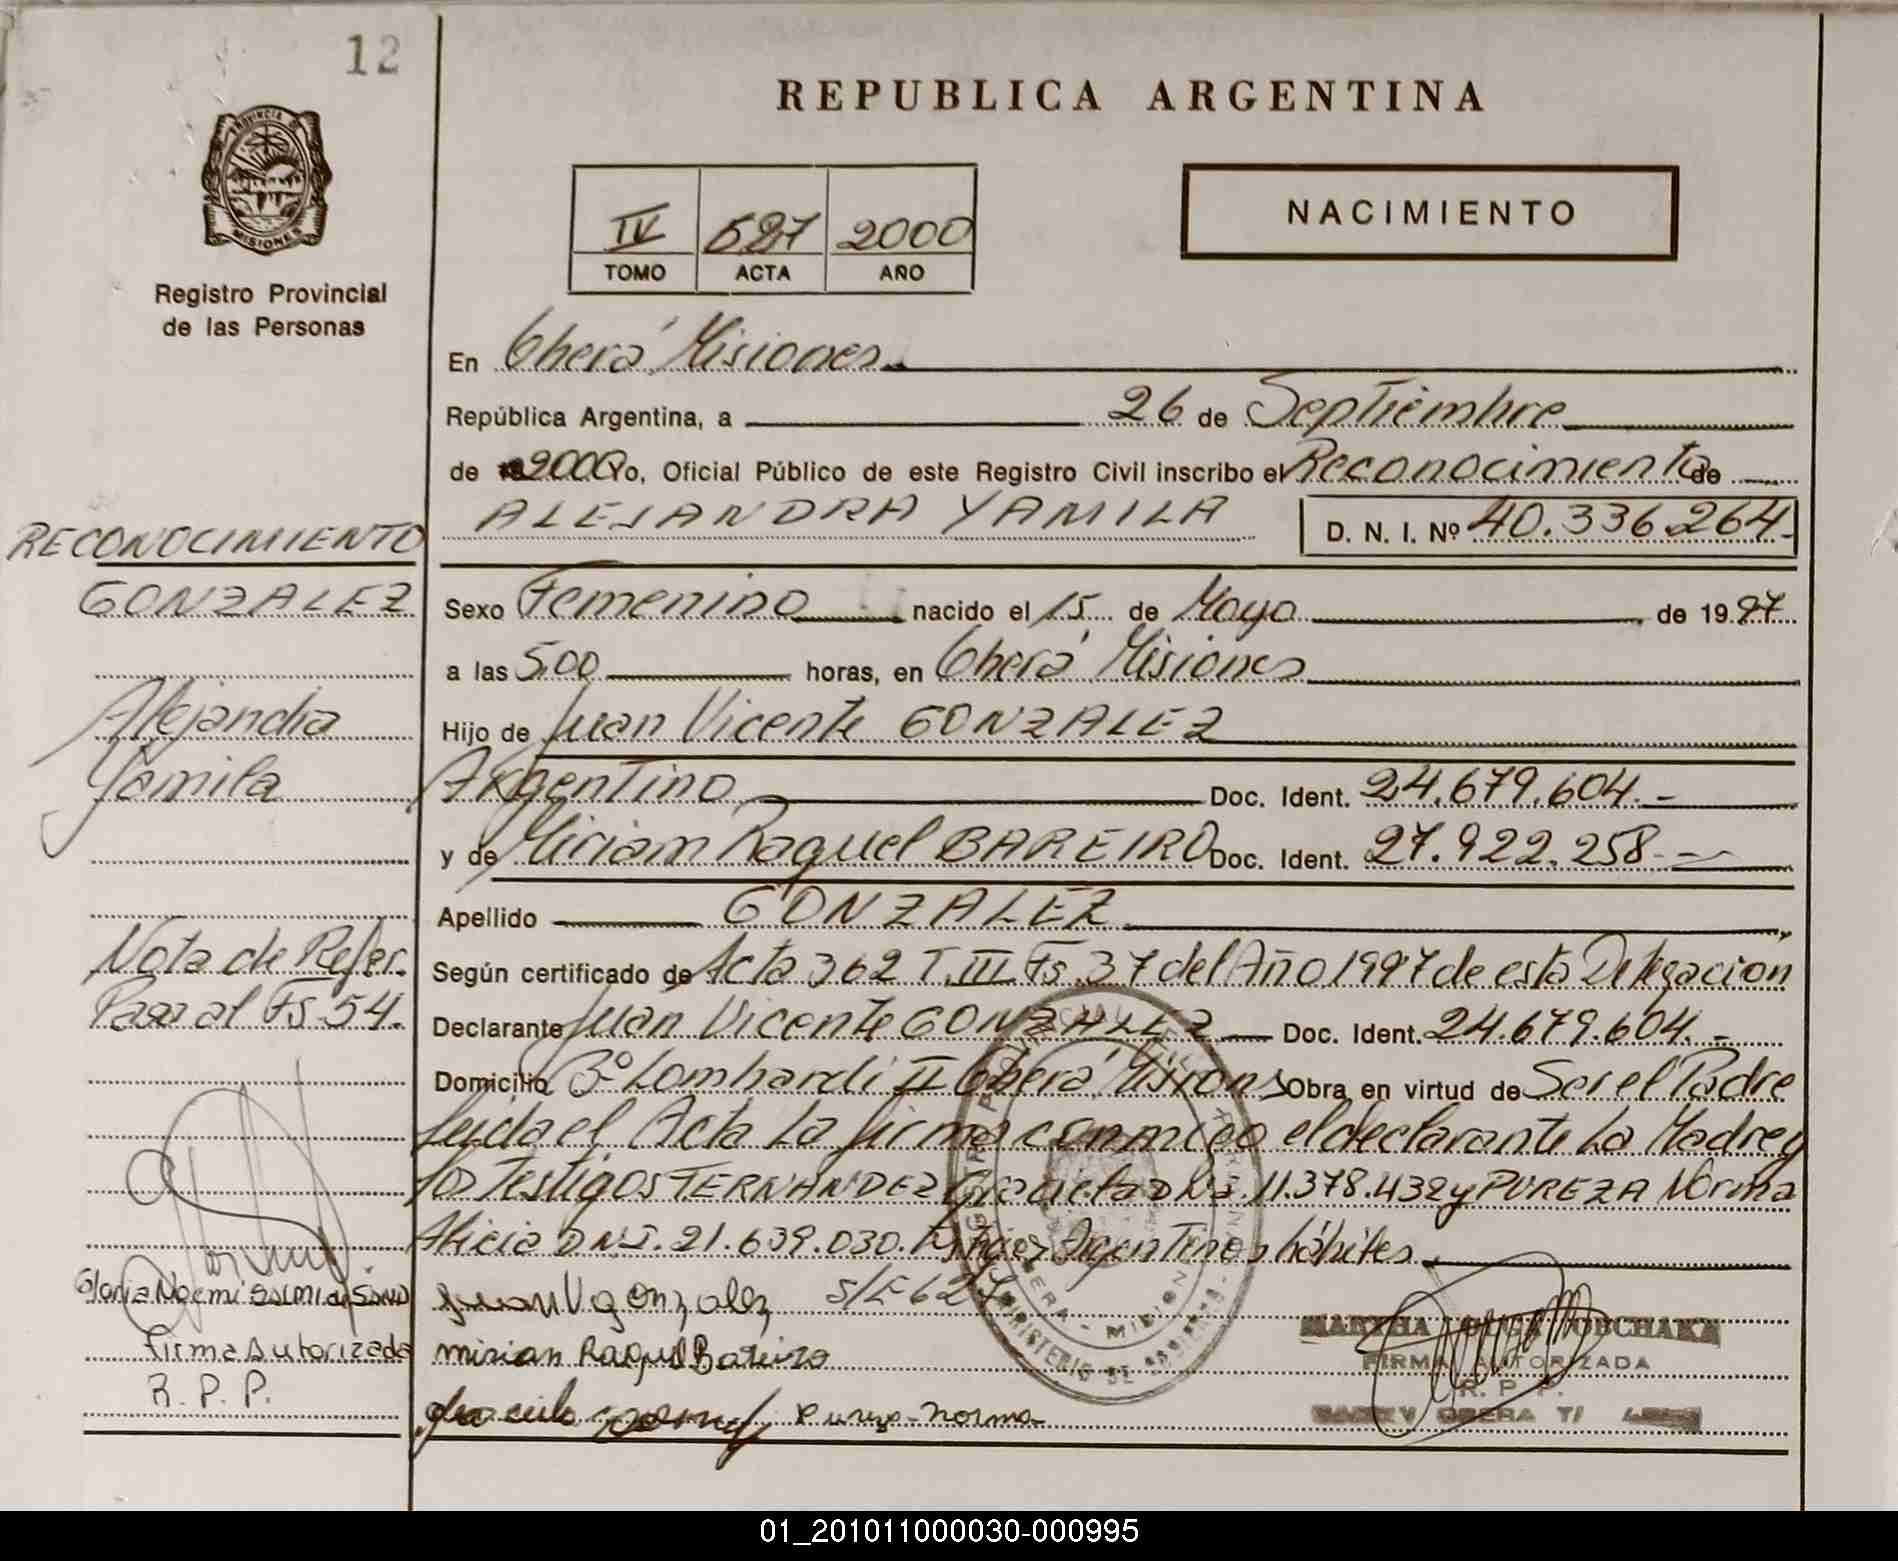 12
REPUBLICA ARGENTINA
PROVINCIA DE
MISIONES
Registro Provincial
de las Personas
IV 587 2000
TOMO ACTA AÑO
NACIMIENTO
En Oberá Misiones
República Argentina, a 26 de Septiembre
de 2000 Yo, Oficial Público de este Registro Civil inscribo el Reconocimiento de
ALEJANDRA YAMILA D. N. I. Nº 40.336.264
RECONOCIMIENTO
GONZALEZ
Alejandra
Yamila
Nota de Refer.
Pasa al Fs 54.
Sexo Femenino nacido el 15 de Mayo de 1997
a las 5,00 horas, en Oberá Misiones
Hijo de Juan Vicente GONZALEZ
Argentino Doc. Ident. 24.679.604.-
y de Miriam Raquel BAREIRO Doc. Ident. 27.922.258.-
Apellido GONZALEZ
Según certificado de Acta 362 T. III Fs. 37 del Año 1997 de esta Delegacion
Declarante Juan Vicente GONZALEZ Doc. Ident. 24.679.604.-
Domicilio Bº Lombardi II Oberá Misiones Obra en virtud de Ser el Padre
Leida el Acta La firma conmigo el declarante La Madre y
los Testigos FERNANDEZ Graciela DNI. 11.378.432 y PUREZA Norma
Alicia DNI. 21.639.030. Argentinos hábiles
Juan V gonzalez S/E 627
mirian Raquel Bareiro
Pureza Norma
Gloria Noemi
Firma Autorizada
R.P.P.
MARTHA
FIRMA AUTORIZADA
R. P. P.
OBERA
01_201011000030-000995